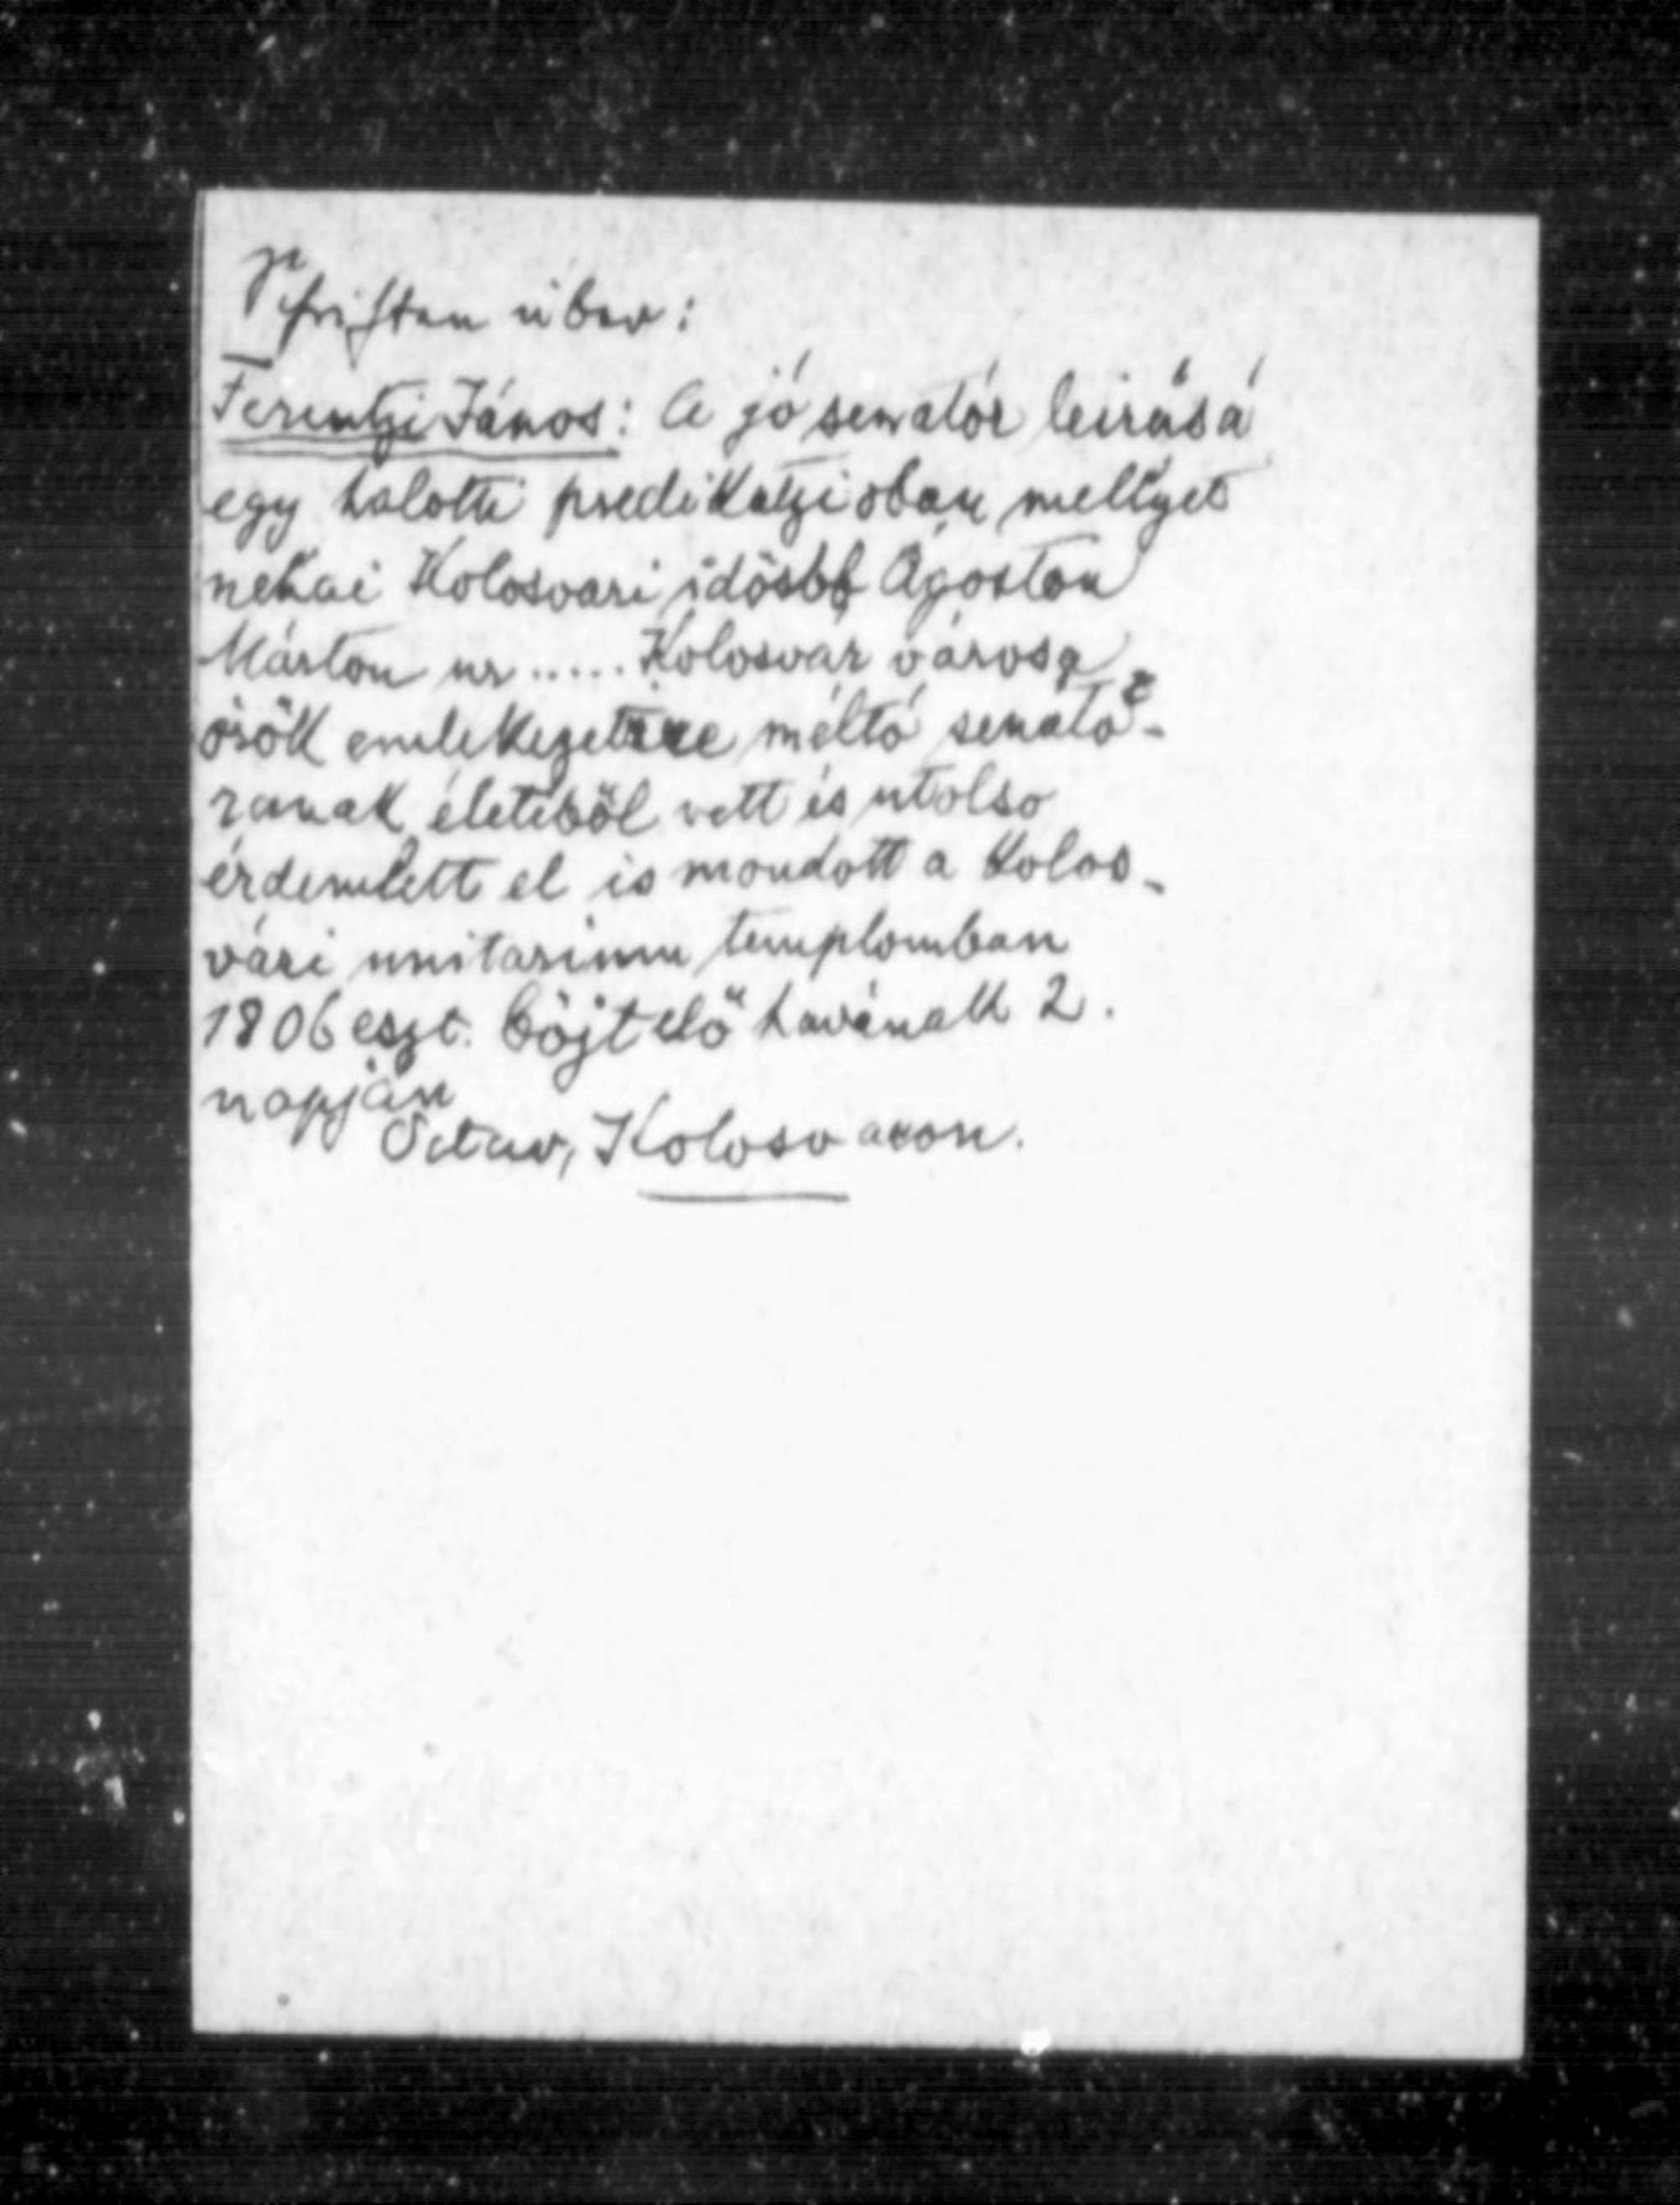 Schriften über:
Ferentzi János: A jó senatór leirásá
egy halotti predikatzioban mellyet
nehai Kolosvari idösbb Ágoston
Márton ur ..... Kolosvár városa
örök emlekezetere méltó senato-
ranak életéböl vett és utolso
érdemlett el is mondott a Kolos-
vári unitarium templomban
1806 eszt. böjt elő havánakk 2.
napján
Octav, Kolosvaron.